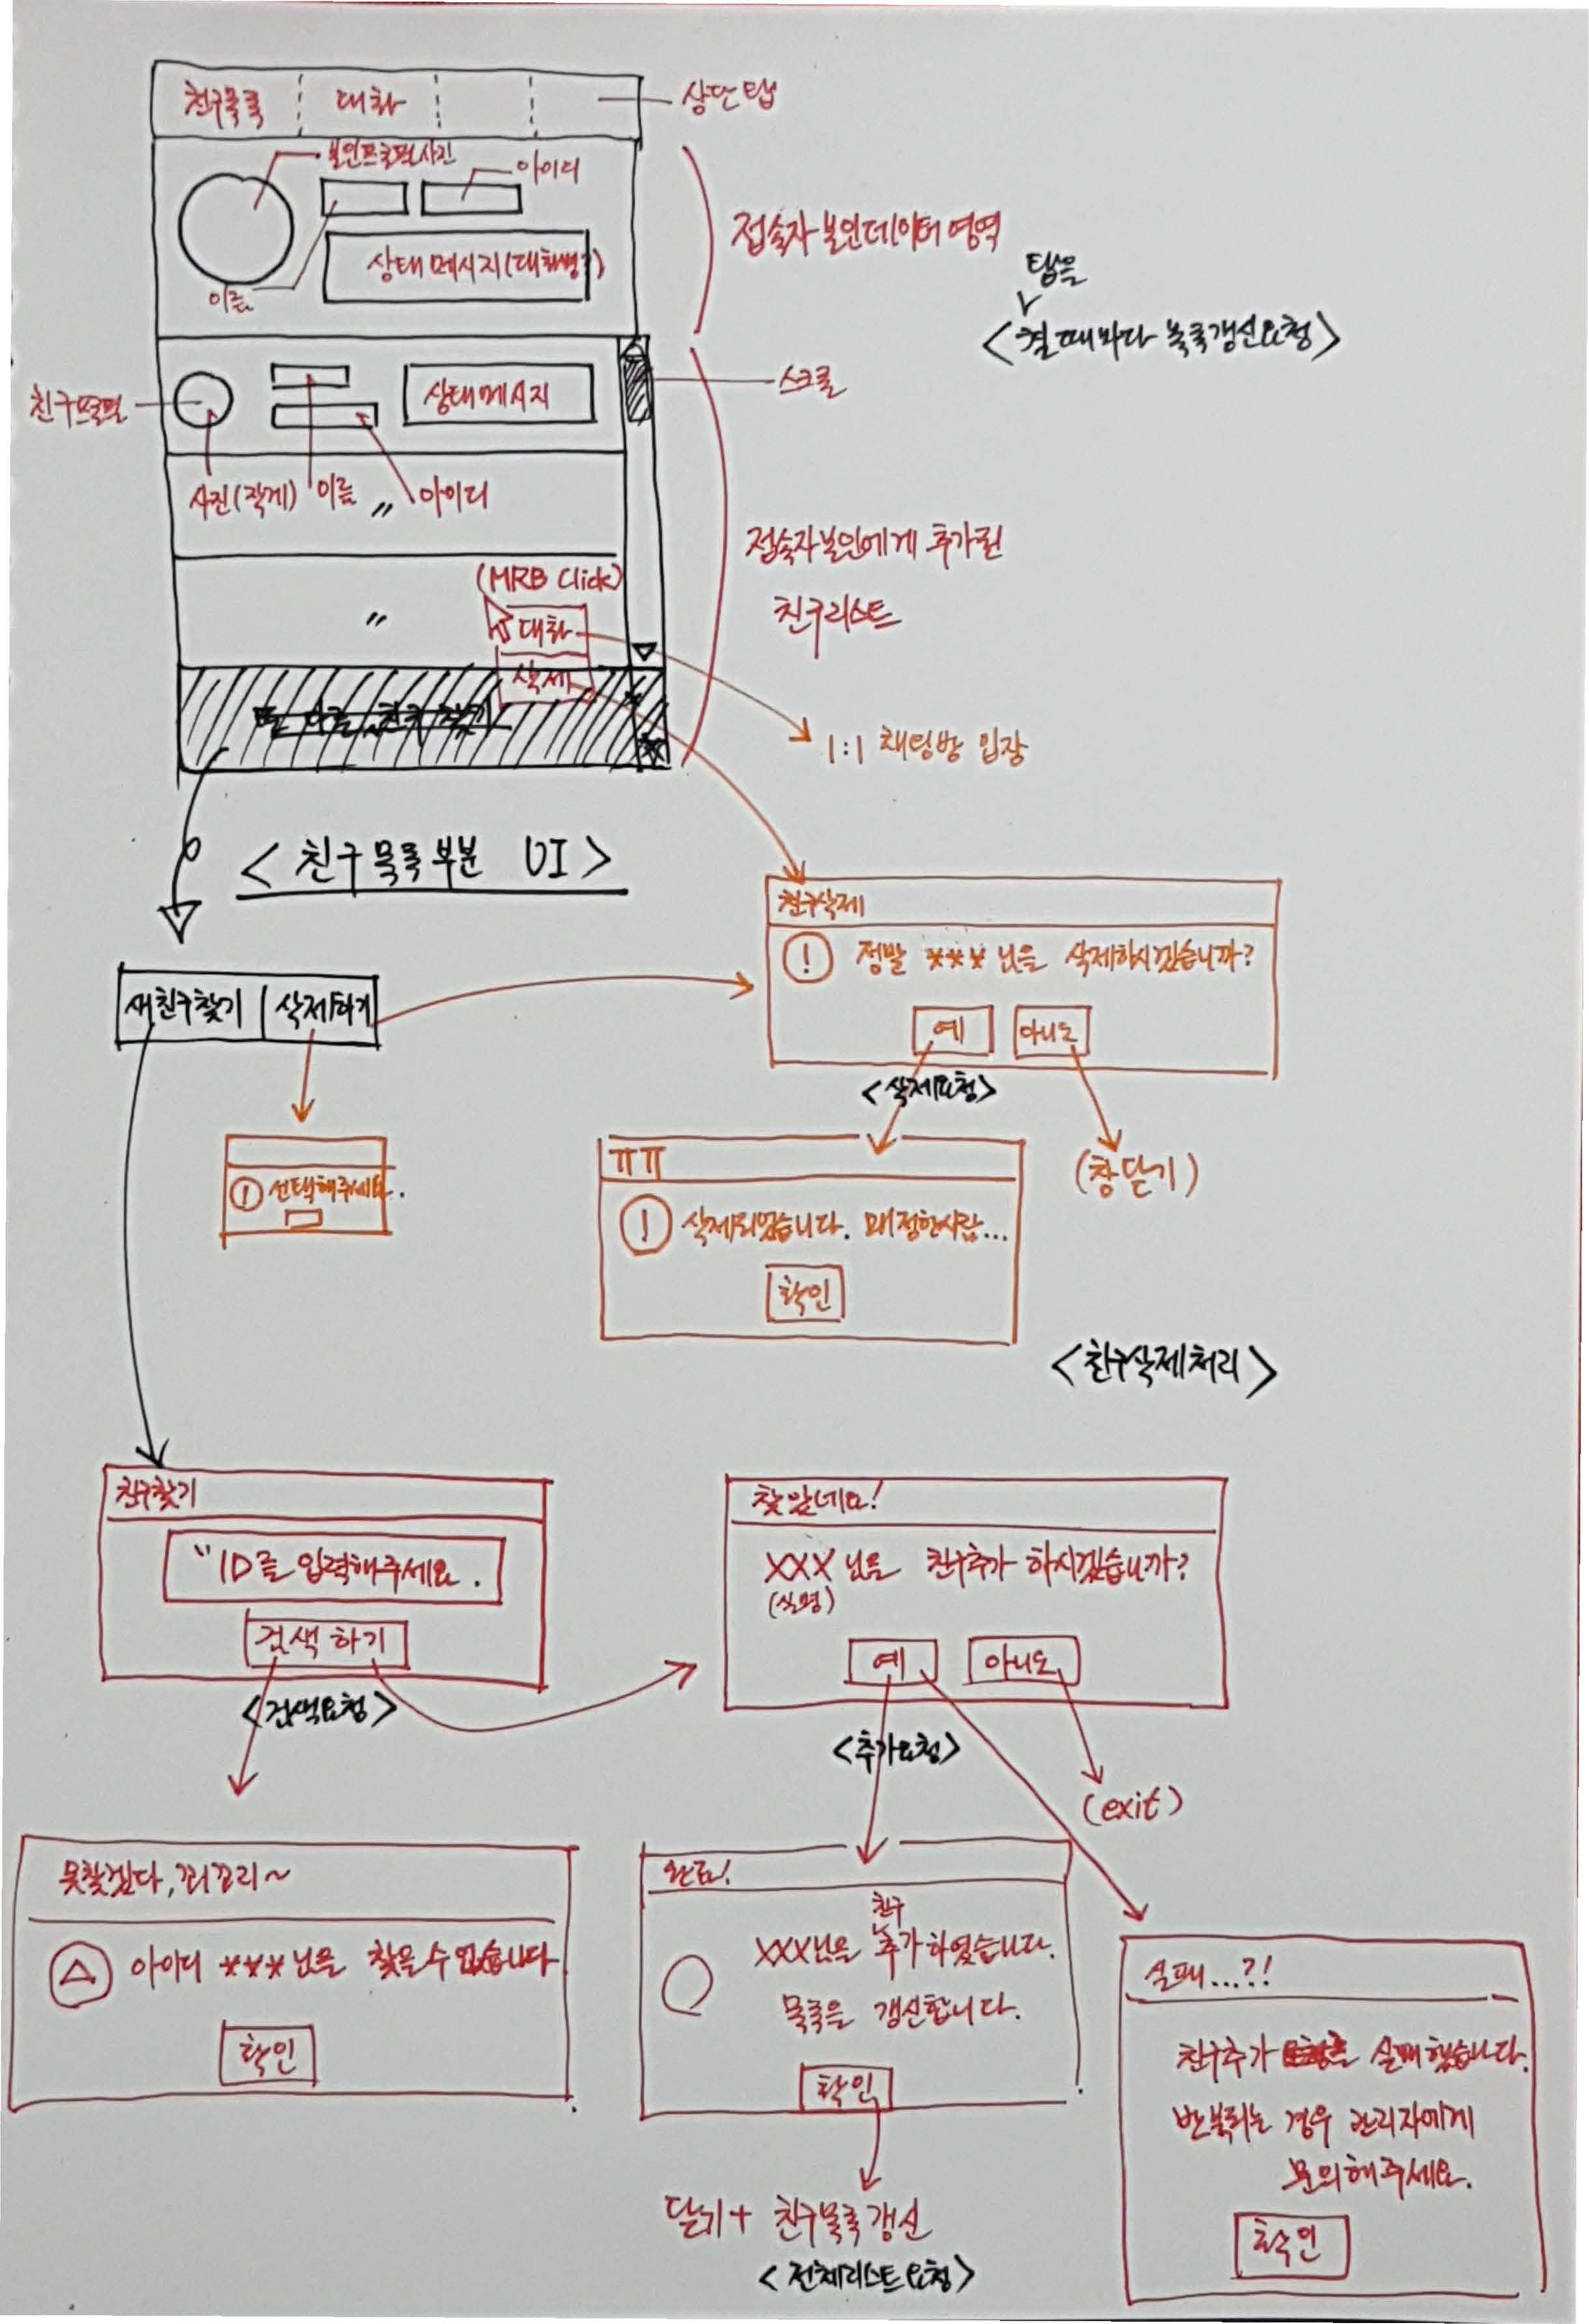 친구목록
대화
상단탭
본인프로필사진
아이디
상태메시지(대화명?)
이름
접속자 본인데이터 영역
탭을
<켤때마다 목록갱신요청>
친구프로필
상태메시지
스크롤
사진(작게)
이름
〃
아이디
접속자본인에게 추가된
친구리스트
(MRB Click)
〃
대화
삭제
친구 찾기
1:1 채팅방 입장
<친구목록부분 UI>
새친구찾기
삭제하기
친구삭제
! 정말 *** 님을 삭제하시겠습니까?
예
아니오
<삭제요청>
(창닫기)
! 선택해주세요.
ㅠㅠ
! 삭제되었습니다. 매정한사람...
확인
<친구삭제처리>
친구찾기
"ID를 입력해주세요.
검색하기
<검색요청>
찾았네요!
XXX 님을 친구추가 하시겠습니까?
(실명)
예
아니오
<추가요청>
(exit)
못찾겠다, 꾀꼬리~
아이디 *** 님을 찾을수 없습니다
확인
완료!
친구
XXX님을 추가하였습니다.
목록을 갱신합니다.
확인
닫기+ 친구목록갱신
<전체리스트요청>
실패...?!
친구추가 실패했습니다.
반복되는 경우 관리자에게
문의해주세요.
확인